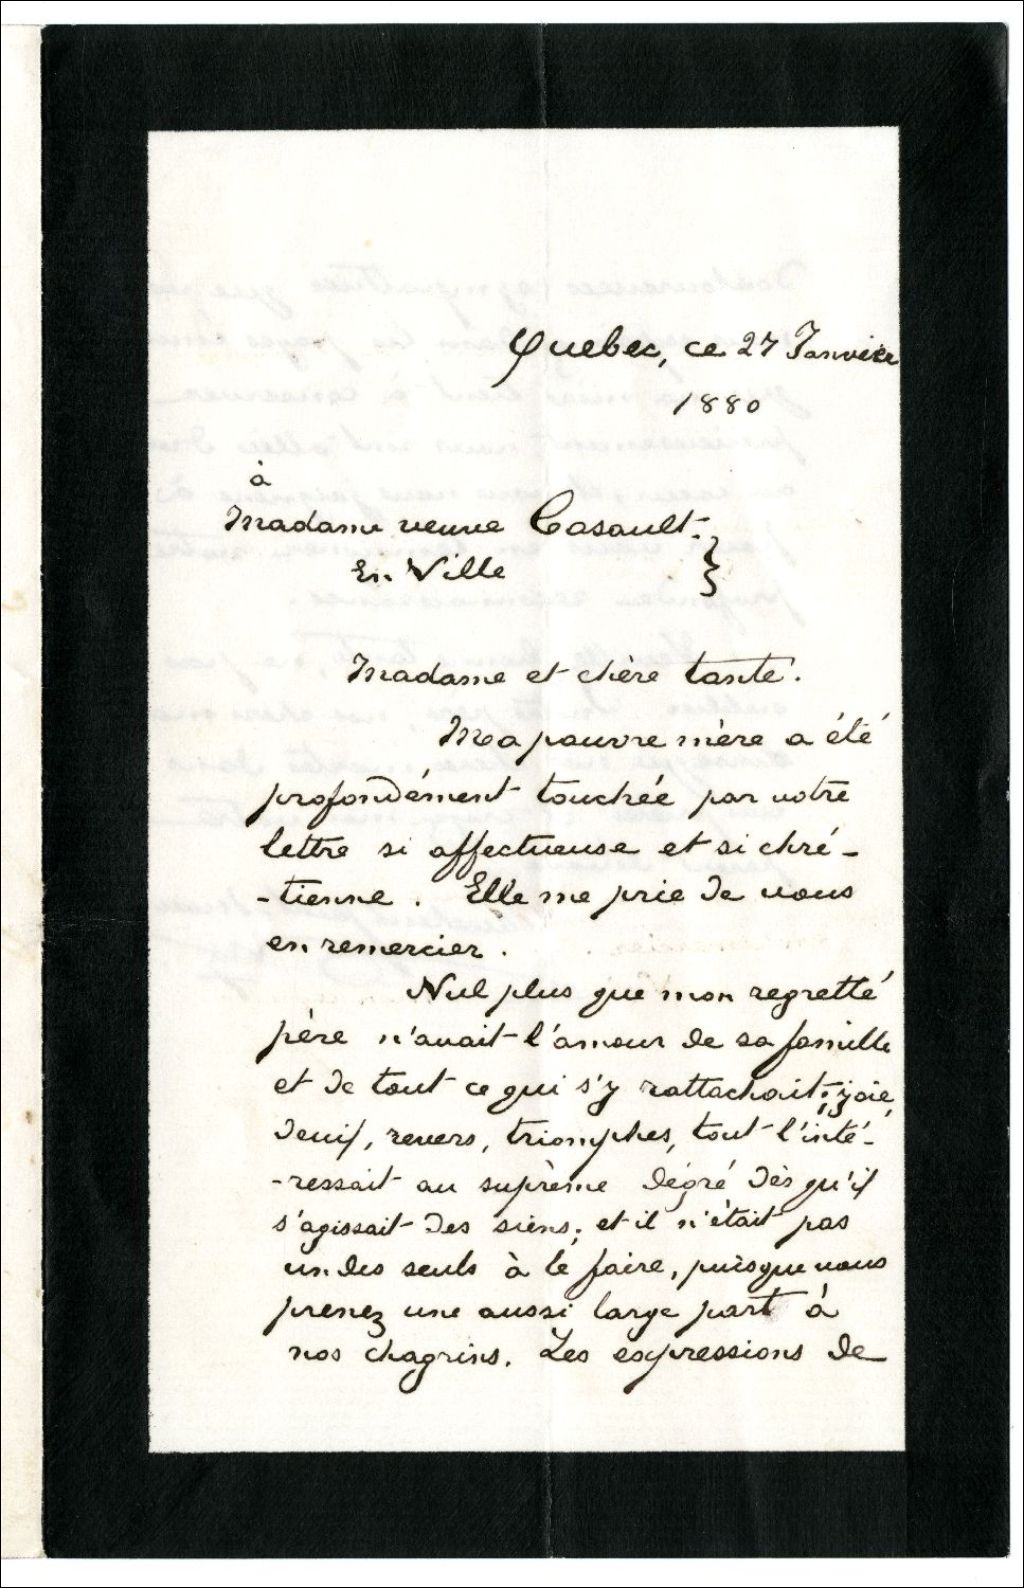 Quebec, ce 27 Janvier
1880
à
Madame veuve Casault.
En Ville
Madame et chère tante.
Ma pauvre mère a été
profondément touchée par votre
lettre si affectueuse et si chré-
-tienne. Elle me prie de vous
en remercier.
Nul plus que mon regretté
père n'avait l'amour de sa famille
et de tout ce qui s'y rattachait; joie,
deuil, revers, triomphes, tout l'inté-
-ressait au suprème dégré dès qu'il
s'agissait des siens; et il n'était pas
un des seuls à le faire, puisque vous
prenez une aussi large part à
nos chagrins. Les expressions de